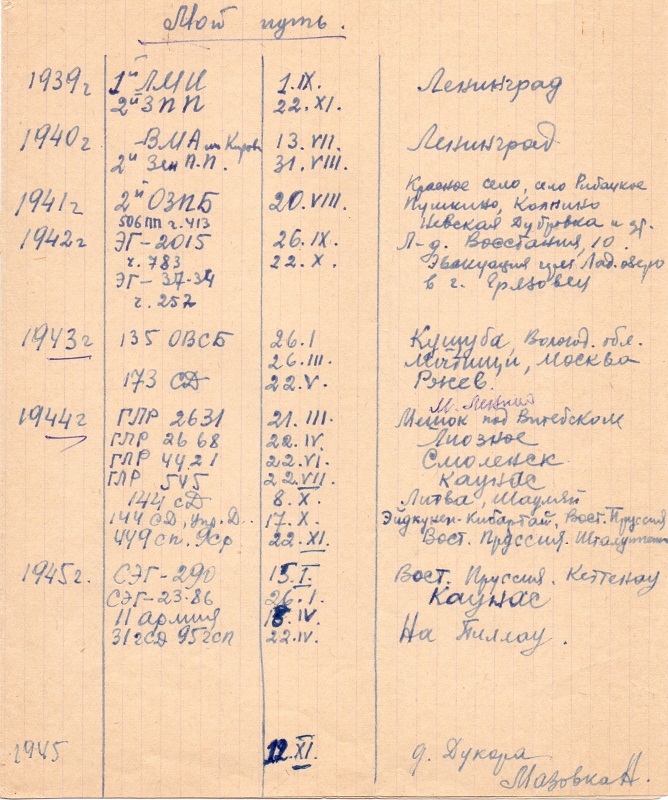 Мой путь.
1939г 1й ЛМИ 1.IX. Ленинград
2й ЗПП 22.XI.
1940г ВМА им Кирова 13.VII. Ленинград
2й Зен П.П. 31.VIII.
Красное село, село Рыбацкое
1941г 2й ОЗПБ 20.VIII. Пушкино, Колпино
506ПП г. 413 Невская Дубровка и др.
1942г ЭГ-2015 26.IX. Л-д. Восстания, 10.
ч. 783 22.X. Эвакуация через Лад. озеро
ЭГ-37-34 в г. Грязовец
ч. 257
1943г 135 ОВСБ 26.I Кущуба, Вологод. обл.
26.III. Мытищи, Москва
173 СД 22.V. Ржев.
М.
1944г ГЛР 2631 21.III. Мешок под Витебском
ГЛР 2668 22.IV. Лиозное
ГЛР 4421 22.VI. Смоленск
ГЛР 545 22.VII. Каунас
144 СД 8.X. Литва, Шауляй
144 СД, Упр. Д. 17.X. Эйдкунен-Кибартай, Вост. Пруссия
449 сп. 9ср 22.XI. Вост. Пруссия.
1945г. СЭГ-290 15.I. Вост. Пруссия. Кеттенау
СЭГ-23-86 26.I. Каунас
11 армия IV.
31гСД 95гсп 22.IV. На Пиллау.
1945 12.XI. д. Дукора
Мазовка Н.